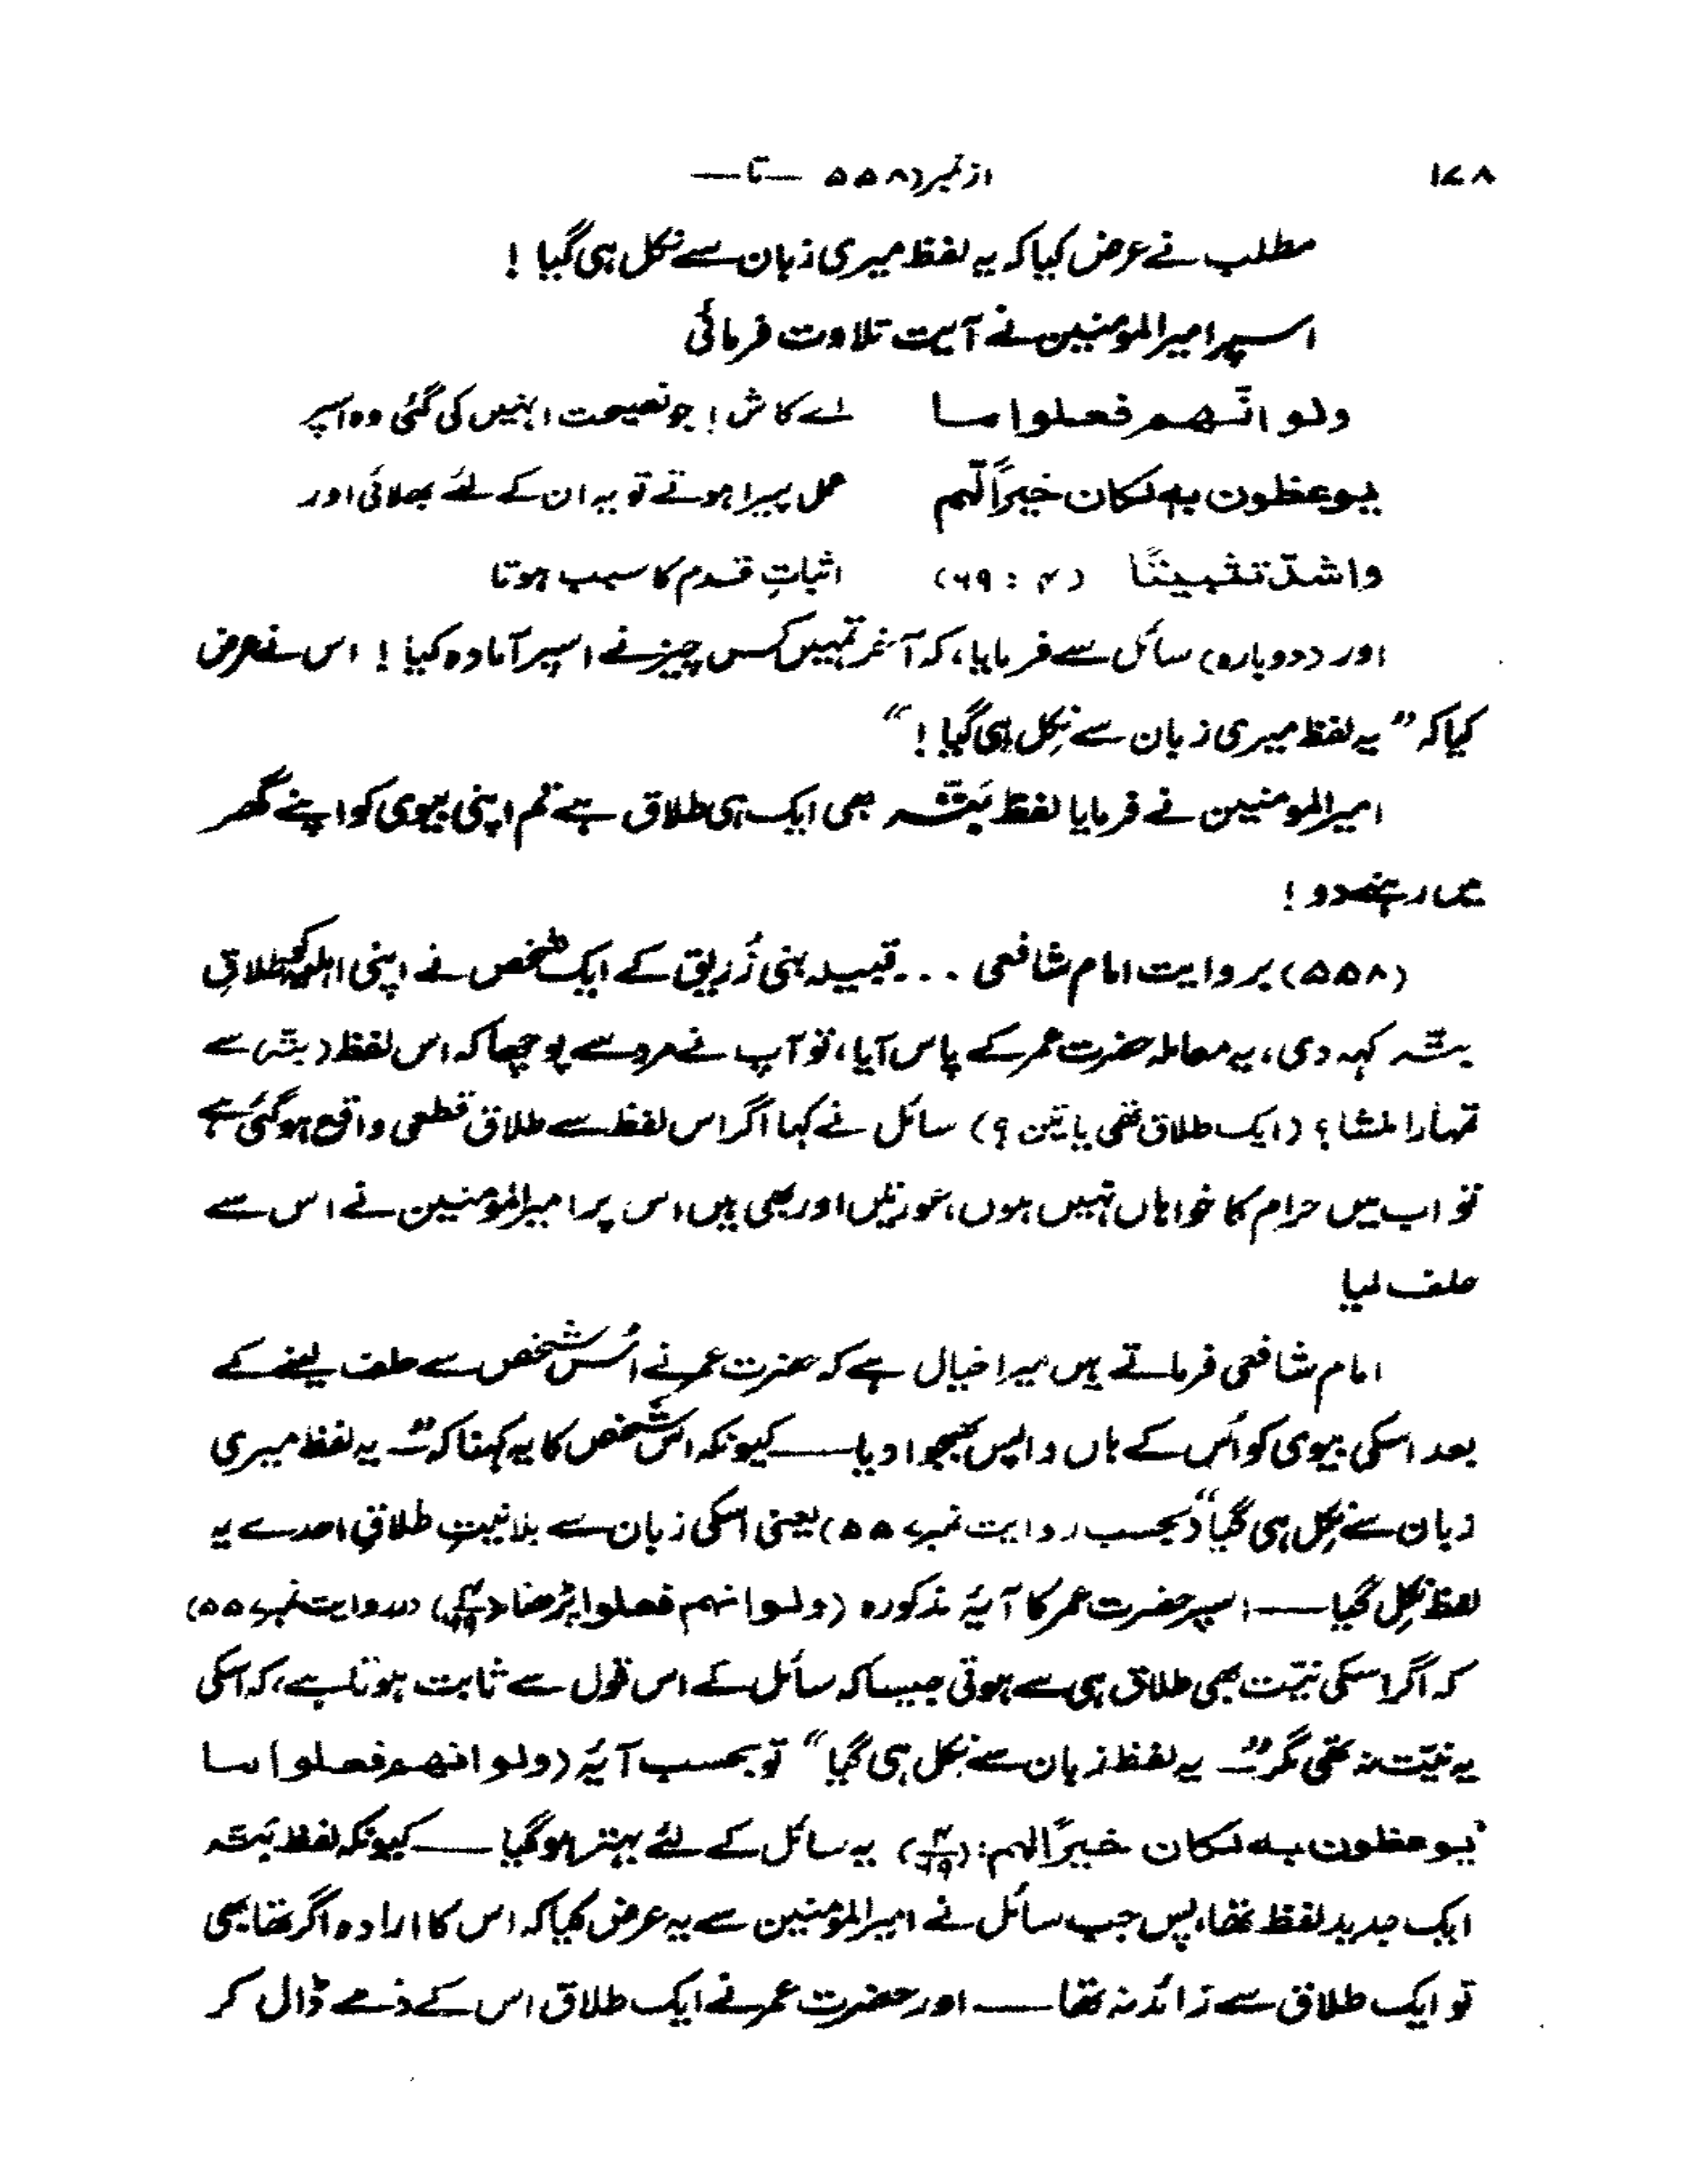 ۱۷۸ از نمبر(۵۵۸ — تا —
مطلب نے عرض کیا کہ یہ لفظ میری زبان سے نکل ہی گیا !
اسپر امیر المؤمنین نے آیت تلاوت فرمائی
ولو انّھم فعلوا ما اے کاش! جو نصیحت انہیں کی گئی وہ اسپر
یوعظون بہ لکان خیراً لّہم عمل پیرا ہوتے تو یہ ان کے لئے بھلائی اور
واشدّ تثبیتًا (۴ : ۶۹) اثباتِ قدم کا سبب ہوتا
اور (دوبارہ) سائل سے فرمایا، کہ آخر تمہیں کس چیز نے اسپر آمادہ کیا ! اس نے عرض
کیا کہ ” یہ لفظ میری زبان سے نکل ہی گیا ! “
امیر المومنین نے فرمایا لفظ بَتّہ بھی ایک ہی طلاق ہے تم اپنی بیوی کو اپنے گھر
میں رہنے دو !
(۵۵۸) بروایت امام شافعی ... قبیلہ بنی زُریق کے ایک شخص نے اپنی اہلیہ کو طلاقِ
بتّہ کہہ دی، یہ معاملہ حضرت عمر کے پاس آیا، تو آپ نے مرد سے پوچھا کہ اس لفظ (بتّہ) سے
تمہارا منشا ؟ (ایک طلاق تھی یا تین ؟) سائل نے کہا اگر اس لفظ سے طلاق قطعی واقع ہو گئی ہے
تو اب میں حرام کا خواہاں نہیں ہوں، عورتیں اور بھی ہیں، اس پر امیر المؤمنین نے اس سے
حلف لیا
امام شافعی فرماتے ہیں میرا خیال ہے کہ حضرت عمر نے اُس شخص سے حلف لینے کے
بعد اسکی بیوی کو اُس کے ہاں واپس بھجوا دیا — کیونکہ اس شخص کا یہ کہنا کہ ” یہ لفظ میری
زبان سے نکل ہی گیا“ (بحسب روایت نمبر ۵۵۷) یعنی اسکی زبان سے بلا نیتِ طلاقِ احدے یہ
لفظ نکل گیا — اسپر حضرت عمر کا آیۂ مذکورہ (ولو انہم فعلوا پڑھنا (۴/۶۹) (در روایت نمبر ۵۵۷)
کہ اگر اسکی نیّت بھی طلاق ہی سے ہوتی جیسا کہ سائل کے اس قول سے ثابت ہوتا ہے، کہ اسکی
یہ نیّت نہ تھی مگر ” یہ لفظ زبان سے نکل ہی گیا“ تو بحسب آیۂ (ولو انھم فعلوا ما
یوعظون بہ لکان خیراً لہم: (۴/۶۹) یہ سائل کے لئے بہتر ہو گیا — کیونکہ لفظ بَتّہ
ایک جدید لفظ تھا، پس جب سائل نے امیر المؤمنین سے یہ عرض کیا کہ اس کا ارادہ اگر تھا بھی
تو ایک طلاق سے زائد نہ تھا — اور حضرت عمر نے ایک طلاق اس کے ذمے ڈال کر